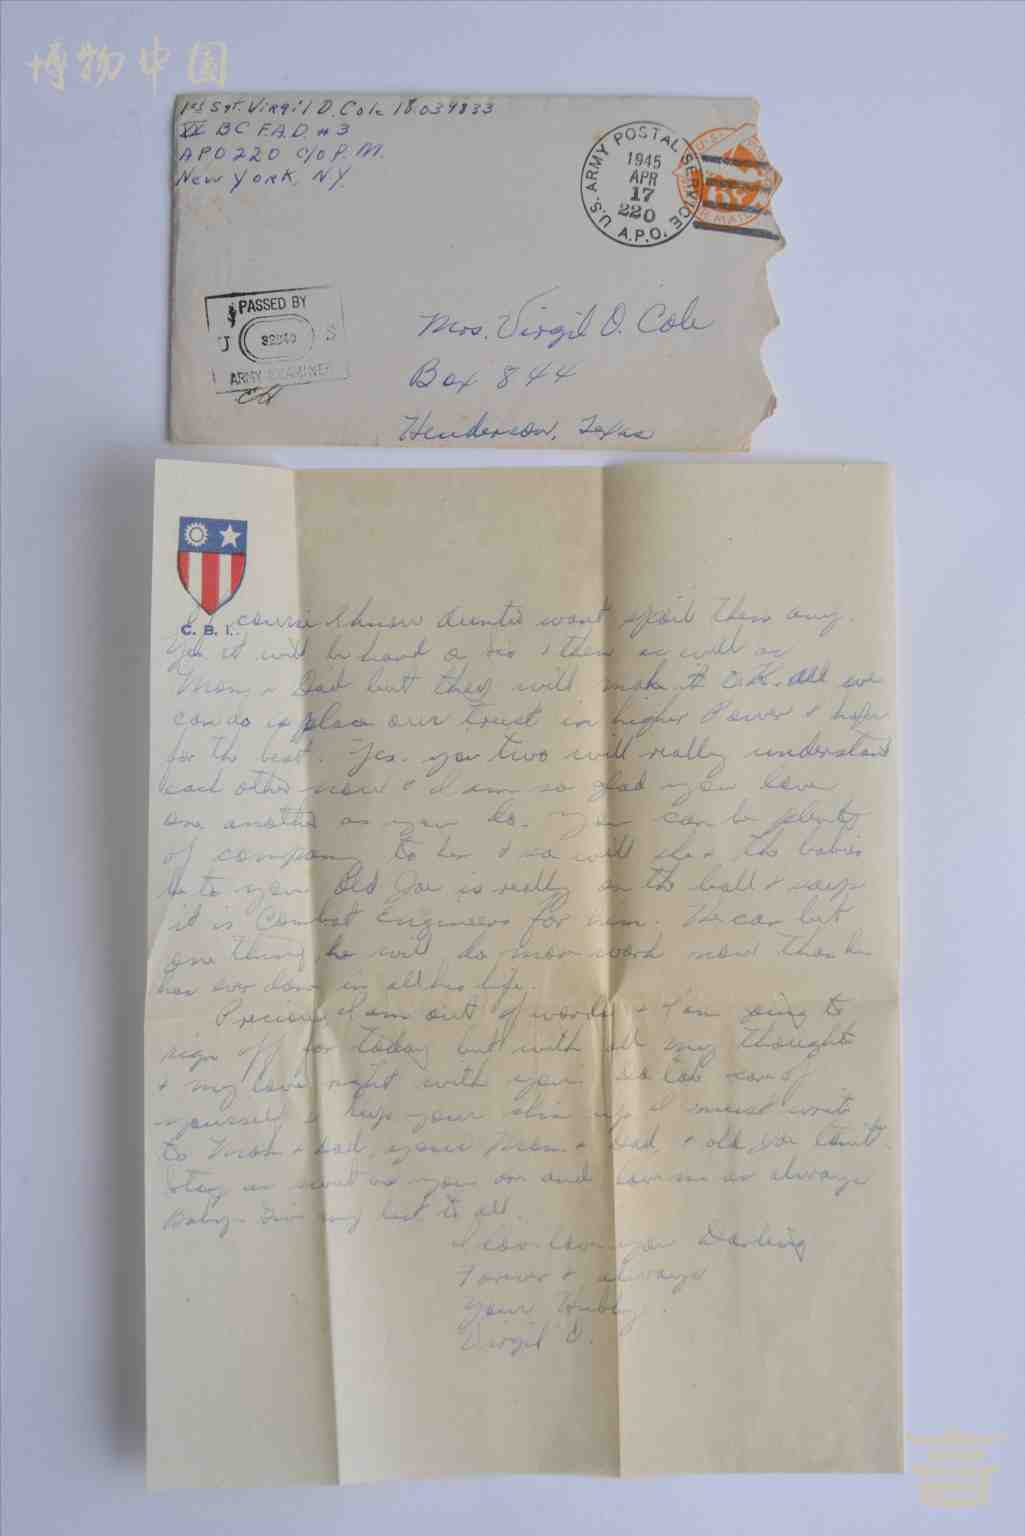 博物中国
1st Sgt. Virgil D. Cole 18039833
BC F.A.D. #3
APO 220 c/o P.M.
New York, NY.
U.S. ARMY POSTAL SERVICE
1945
APR
17
220
A.P.O.
PASSED BY
U S
ARMY EXAMINER
Mrs. Virgil D. Cole
Box 844
Henderson, Texas
C. B. I.
course I know Auntie wont spoil them any.
Yes it will be hard on them as well as
Mom & Dad but they will make it O.K. All we
can do is place our trust in higher Power & hope
for the best. Yes you two will really understand
each other now & I am so glad you love
one another as you do. You can be plenty
of company to her & so will she & the babies
be to you. Old Joe is really on the ball & says
it is Combat Engineers for him. He can bet
one thing he will do more work now than he
has ever done in all his life.
Precious I am out of words & I'm going to
sign off for today but with all my thoughts
& my love right with you. So take care of
yourself & keep your chin up. I must write
to Mom & Dad, your Mom & Dad & old
Stay as sweet as you are and love me as always
Baby. Give my best to all.
I love you Darling
Forever & always
Your Hubby
Virgil D.